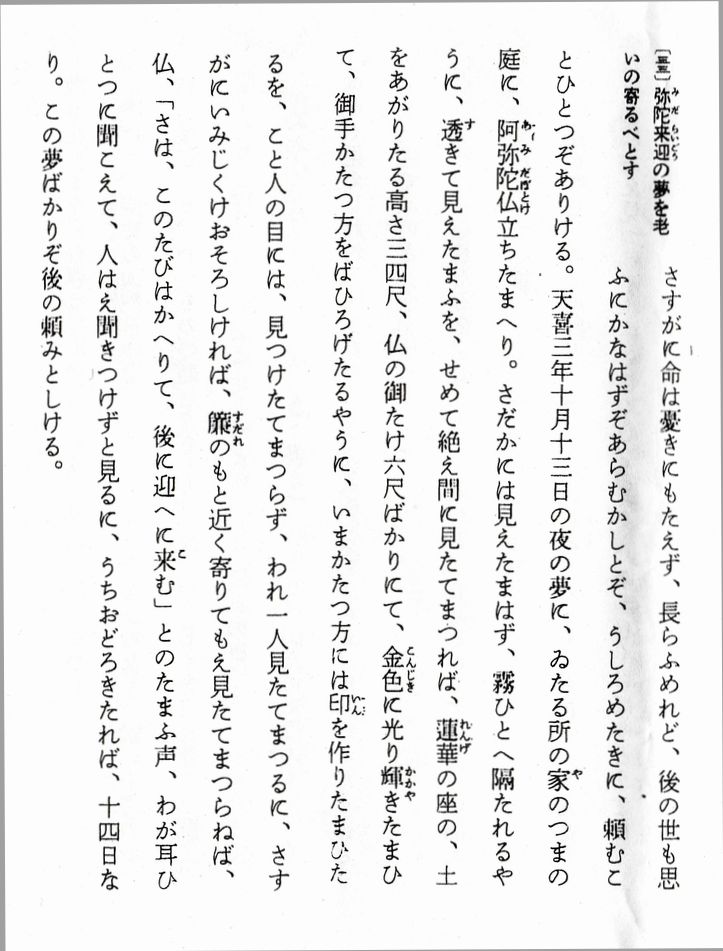 みだらいごう
弥陀来迎の夢を老
いの寄るべとす
さすがに命は憂きにもたえず、長らふめれど、後の世も思
ふにかなはずぞあらむかしとぞ、うしろめたきに、頼むこ
や
とひとつぞありける。天喜三年十月十三日の夜の夢に、ゐたる所の家のつまの
あみだぼとけ
庭に、阿弥陀仏立ちたまへり。さだかには見えたまはず、霧ひとへ隔たれるや
す れんげ
うに、透きて見えたまふを、せめて絶え間に見たてまつれば、蓮華の座の、土
こんじき かかや
をあがりたる高さ三四尺、仏の御たけ六尺ばかりにて、金色に光り輝きたまひ
いん
て、御手かたつ方をばひろげたるやうに、いまかたつ方には印を作りたまひた
るを、こと人の目には、見つけたてまつらず、われ一人見たてまつるに、さす
すだれ
がにいみじくけおそろしければ、簾のもと近く寄りてもえ見たてまつらねば、
こ
仏、「さは、このたびはかへりて、後に迎へに来む」とのたまふ声、わが耳ひ
とつに聞こえて、人はえ聞きつけずと見るに、うちおどろきたれば、十四日な
り。この夢ばかりぞ後の頼みとしける。